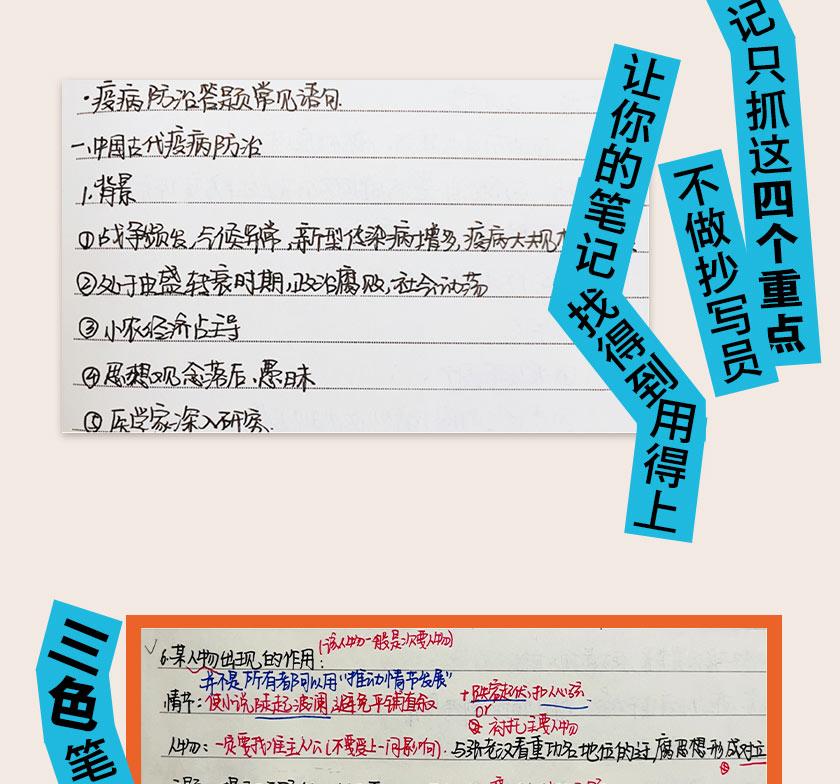 记只抓这四个重点
不做抄写员
让你的笔记
找得到
用得上
·疫病防治答题常见语句.
一、中国古代疫病防治
1.背景
①战争频发,气候异常,新型传染病增多,疫病大规
②处于由盛转衰时期,政治腐败,社会动荡
③小农经济占主导
④思想观念落后、愚昧
⑤医学家深入研究.
三色笔
(该人物一般是次要人物)
6.某人物出现的作用:
并不是所有者都可以用"推动情节发展"
情节:使小说陡起波澜,避免平铺直叙
or
衬托主要人物
人物:一定要找准主人公(不要受上一问影响).
地位的迂腐思想形成对立